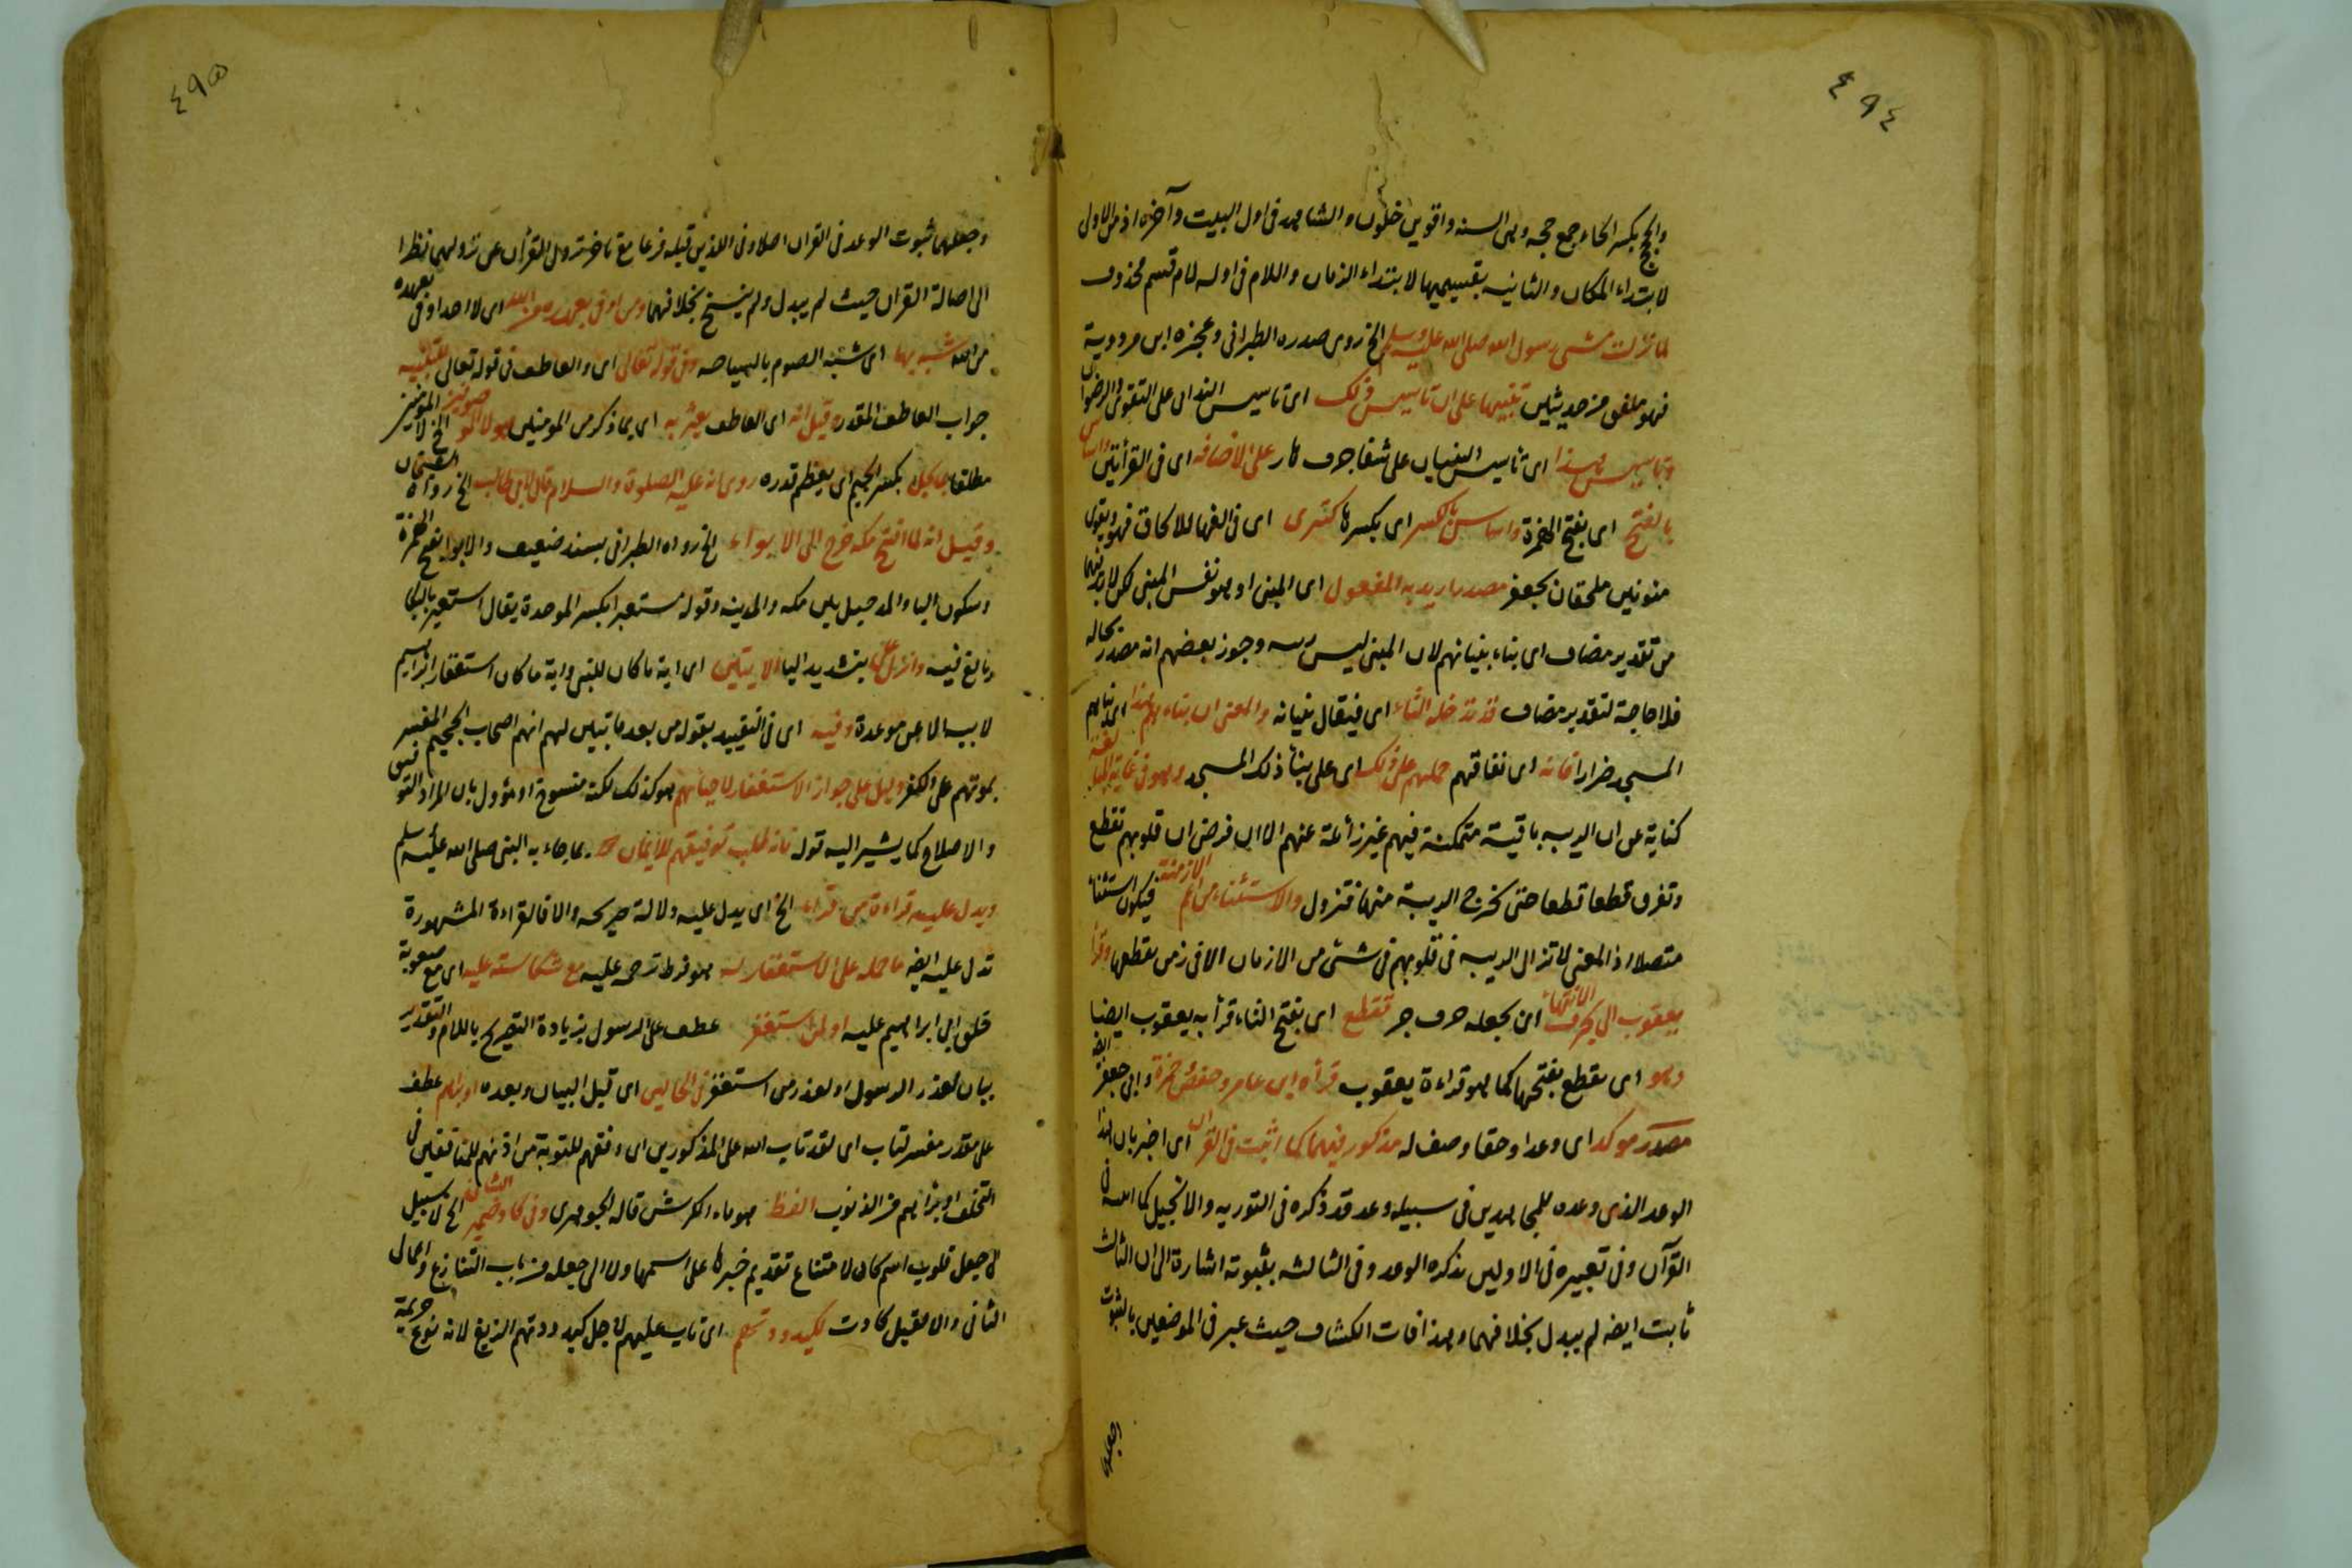 ٤٩٤
والحجج بكسر الحاء جمع حجه وهى السنه واقوين خلون والشاهد فى اول البيت وآخره اذ من الاولى
لابتداء المكان والثانيه بقسيميها لابتداء الزمان واللام فى اوله لام قسم محذوف
لما نزلت مشى رسول الله صلى الله عليه وسلم الخ روى صدره الطبرانى وعجزه ابن مردوية
فهو ملفق من حديثين تنبيها على ان تاسيس ذلك اى تاسيس البنيان على التقوى والرضوان
وتاسيس هذا اى تاسيس البنيان على شفا جرف هار على الاضافه اى فى القرأتين واساس
بالفتح اى بفتح الهمزة واساس بالكسر اى بكسرها كتترى اى فى الفها للالحاق فهو وتقوى
منونين ملحقان بجعفر مصدر اريد به المفعول اى المبنى او هو نفس المبنى لكن لابد
من تقدير مضاف اى بناء بنيانهم لان المبنى ليس ريبه وجوز بعضهم انه مصدر بحاله
فلا حاجة لتقدير مضاف قد تدخله التاء اى فيقال بنيانه والمعنى ان بناءهم هذا اى بناهم
المسجد ضرارا فانه اى نفاقهم حملهم على ذلك اى على بنأ ذلك المسجد وهو فى غاية المبالغة
كناية عن ان الريبه باقية متمكنة فيهم غير زائلة عنهم الا ان فرض ان قلوبهم تقطع
وتفرق قطعا قطعا حتى تخرج الريبة منها فتزول والاستثناء من اعم الازمنة فيكون استثناء
متصلا اذ المعنى لا تزال الريبه فى قلوبهم فى شئ من الازمان الا فى زمن تقطعها وقرأ
يعقوب الى بحرف الانتهاء اى بجعله حرف جر تقطع اى بفتح التاء قرأ به يعقوب ايضا
وهو اى تقطع بفتحها كما هو قراءة يعقوب قرأه ابن عامر وحفص وحمزة وابى جعفر ايضه
مصدر موكد اى وعدا وحقا وصف له مذكور فيهما كما اثبت فى القران اى اخبر بان هذا
الوعد الذى وعده للمجاهدين فى سبيله وعد قد ذكره فى التوريه والانجيل كما اثبته فى
القرآن وفى تعبيره فى الاولين بذكره الوعد وفى الثالثه بثبوته اشارة الى ان الثالث
ثابت ايضه لم يبدل بخلافهما وبهذا فات الكشاف حيث عبر فى الموضعين بالثبوت
وجعلهما
٤٩٥
وجعلهما ثبوت الوعد فى القران اصلا وفى الذين قبله فرعا مع تاخر نزول القرأن عن نزولهما نظرا
الى اصالة القران حيث لم يبدل ولم ينسخ بخلافهما ومن اوفى بعهده من الله اى لا احد اوفى بعهده
من الله شبه بها اى شبه الصوم بالسياحه وفى قوله تعالى اى والعاطف فى قوله تعالى للتنبيه
جواب العاطف المقدره قيل انه اى العاطف يعبر به اى بما ذكر من المومنين هولاء الموصوفين الخ لا المومنين
مطلقا يبجل بكسر الجيم اى يعظم قدره روى انه عليه الصلوة والسلام قال لابى طالب الخ رواه الشيخان
وقيل انه لما افتتح مكه خرج الى الابواء الخ رواه الطبرانى بسند ضعيف والابوا بفتح الهمزة
وسكون البا والمد جبل بين مكه والمدينه وقوله مستعبرا بكسر الموحدة يقال استعبر بالبكا
وبالغ فيه وانزل على بتشديد اليا الايتين اى اية ما كان للنبى واية ما كان استغفار ابراهيم
لابيه الا عن موعدة وفيه اى فى التقييد بقوله من بعد ما تبين لهم انهم اصحاب الجحيم المفسر
بموتهم على الكفر دليل على جواز الاستغفار لاحيائهم هو كذلك لكنه منسوخ او مؤول بان المراد التوفيق
والاصلاح كما يشير اليه قوله فانه طلب توفيقهم للايمان بما جاء به النبى صلى الله عليه وسلم
ويدل عليه قراءة من قراء الخ اى يدل عليه دلالة صريحه والا فالقراءة المشهورة
تدل عليه ايضه ما حمله على الاستغفار له هو فرط ترحمه عليه مع شكاسته عليه اى مع صعوبة
خلق ابى ابراهيم عليه او لمن استغفر عطف على الرسول بزيادة التصريح باللام والتقدير
بيان لعذر الرسول او لعذر من استغفر فى الحالين اى قبل البيان وبعده او براهم عطف
على مقدر مفسر لتاب اى لقد تاب الله على المذكورين اى وفقهم للتوبة من اذنهم للمنافقين فى
التخلف او براهم من الذنوب الفظ هو ماء الكرش قاله الجوهرى وفى كاد ضمير الشان الخ لا سبيل
الى جعل قلوب اسم كان لامتناع تقديم خبرها على اسمها ولا الى جعله من باب التنازع واعمال
الثانى والا لقيل كادت لكيدودتهم اى تاب عليهم لاجل كيدودتهم الزيغ لانه نوع جريمة